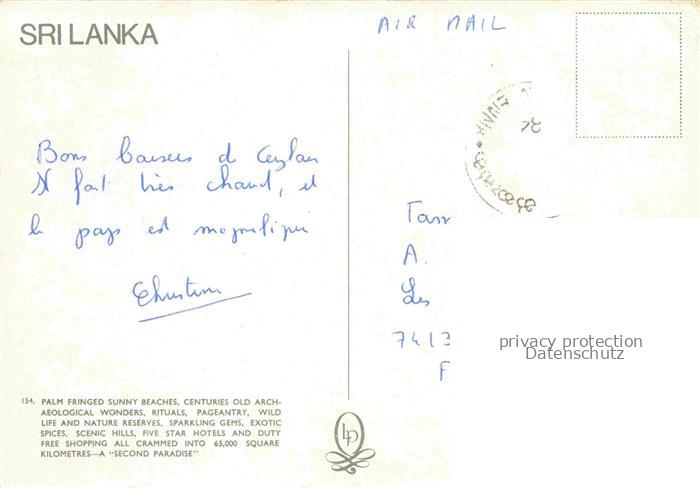 SRI LANKA
AIR MAIL
Bons baisers de Ceylan
Il fait très chaud, et
le pays est magnifique
Christine
Tan
A.
Les
7413
F
privacy protection
Datenschutz
154. PALM FRINGED SUNNY BEACHES, CENTURIES OLD ARCH-
AEOLOGICAL WONDERS, RITUALS, PAGEANTRY, WILD
LIFE AND NATURE RESERVES, SPARKLING GEMS, EXOTIC
SPICES, SCENIC HILLS, FIVE STAR HOTELS AND DUTY
FREE SHOPPING ALL CRAMMED INTO 65,000 SQUARE
KILOMETRES—A "SECOND PARADISE"